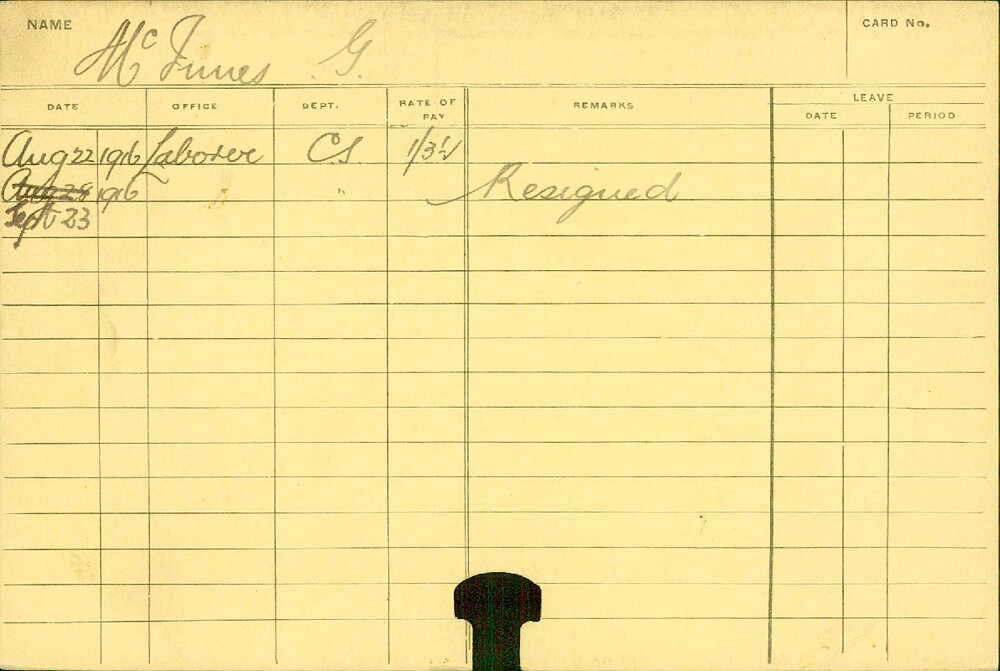 NAME
McInnes G.
CARD No.
DATE OFFICE DEPT. RATE OF PAY REMARKS LEAVE
DATE PERIOD
Aug 22 1916 Laborer CS 1/3½
Aug 28 1916 " Resigned
Sept 23